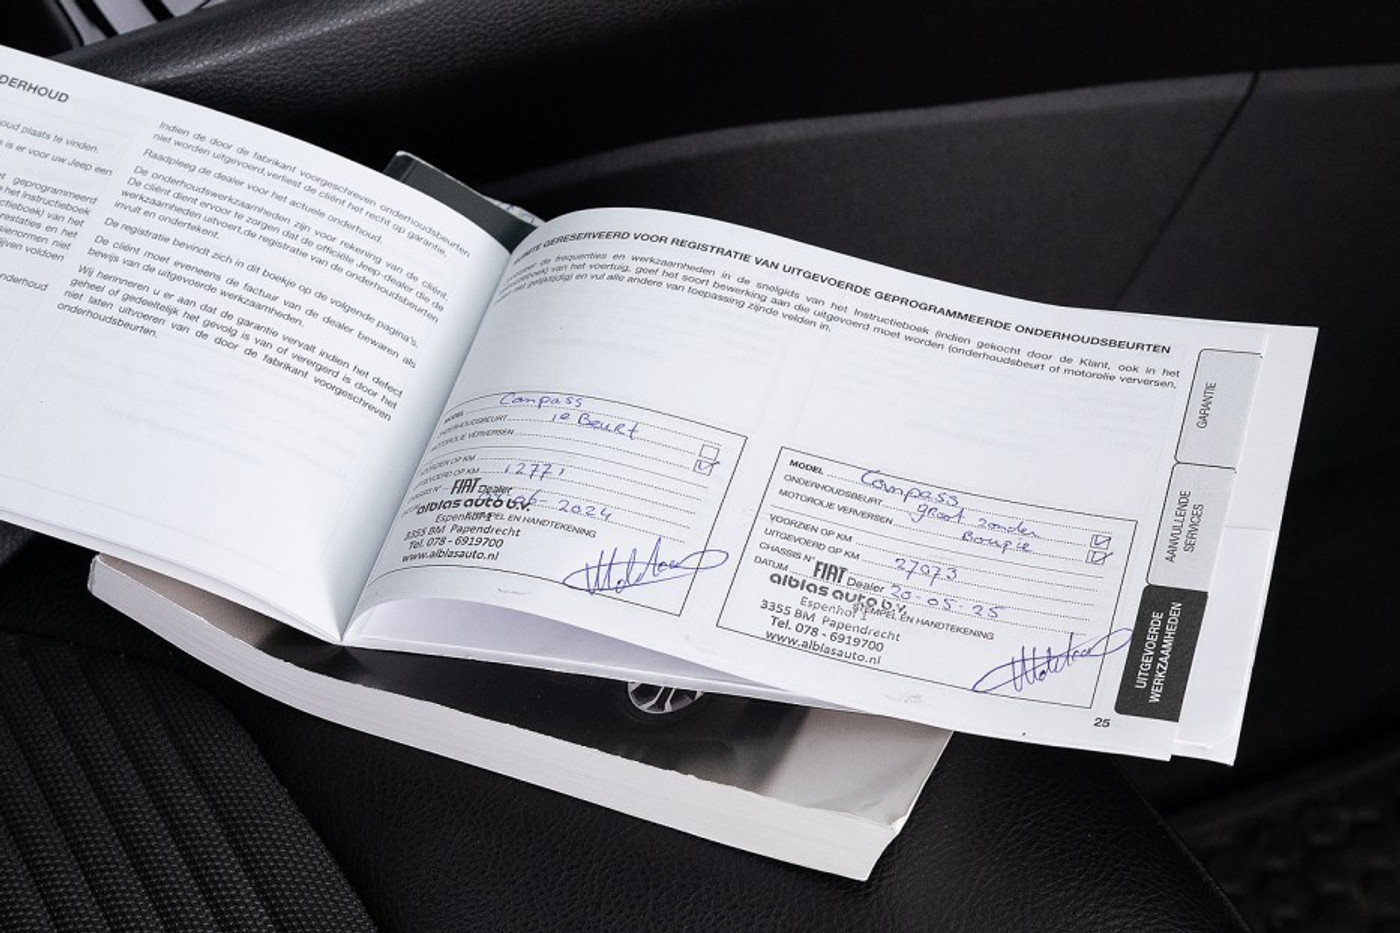 ONDERHOUD
oud plaats te vinden.
is er voor uw Jeep een
geprogrammeerd
het Instructieboek
van het
restaties en het
sienormen niet
ijven voldoen
onderhoud
Indien de door de fabrikant voorgeschreven onderhoudsbeurten
niet worden uitgevoerd,verliest de cliënt het recht op garantie.
Raadpleeg de dealer voor het actuele onderhoud.
De onderhoudswerkzaamheden zijn voor rekening van de cliënt.
De cliënt dient ervoor te zorgen dat de officiële Jeep-dealer die de
werkzaamheden uitvoert,de registratie van de onderhoudsbeurten
invult en ondertekent.
De registratie bevindt zich in dit boekje op de volgende pagina's.
De cliënt moet eveneens de factuur van de dealer bewaren als
bewijs van de uitgevoerde werkzaamheden.
Wij herinneren u er aan dat de garantie vervalt indien het defect
geheel of gedeeltelijk het gevolg is van of verergerd is door het
niet laten uitvoeren van de door de fabrikant voorgeschreven
onderhoudsbeurten.
GERESERVEERD VOOR REGISTRATIE VAN UITGEVOERDE GEPROGRAMMEERDE ONDERHOUDSBEURTEN
de frequenties en werkzaamheden in de snelgids van het Instructieboek (indien gekocht door de Klant, ook in het
van het voertuig, geef het soort bewerking aan die uitgevoerd moet worden (onderhoudsbeurt of motorolie verversen,
niet gelijktijdig) en vul alle andere van toepassing zijnde velden in.
MODEL Compass
ONDERHOUDSBEURT 1e Beurt
MOTOROLIE VERVERSEN
VOORZIEN OP KM
UITGEVOERD OP KM 12771
CHASSIS N°
FIAT Dealer
06-2024
alblas auto b.v.
Espenhof 1
STEMPEL EN HANDTEKENING
3355 BM Papendrecht
Tel. 078 - 6919700
www.alblasauto.nl
MODEL Compass
ONDERHOUDSBEURT groot zonder
MOTOROLIE VERVERSEN Bougie
VOORZIEN OP KM
UITGEVOERD OP KM 27973
CHASSIS N°
DATUM 20-05-25
FIAT Dealer
alblas auto b.v.
Espenhof 1
STEMPEL EN HANDTEKENING
3355 BM Papendrecht
Tel. 078 - 6919700
www.alblasauto.nl
25
GARANTIE
AANVULLENDE
SERVICES
UITGEVOERDE
WERKZAAMHEDEN